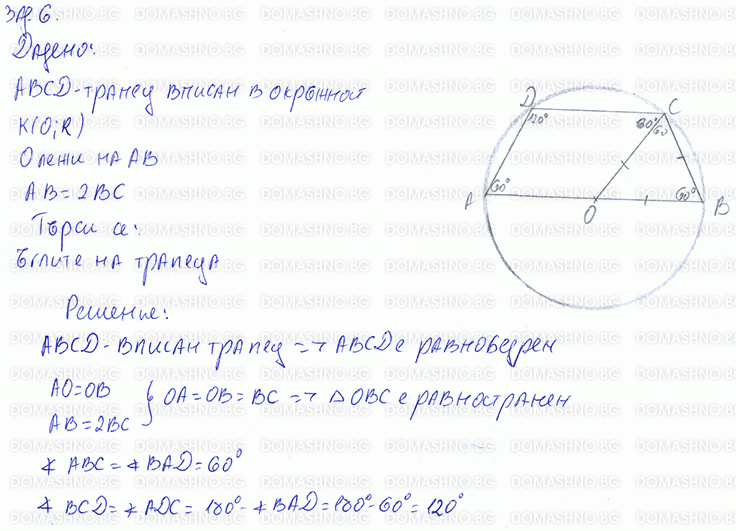 Зад. 6.
Дадено:
ABCD - трапец вписан в окръжност
K(O; R)
O лежи на AB
AB = 2BC
Търси се:
Ъглите на трапеца
Решение:
ABCD - вписан трапец => ABCD е равнобедрен
AO = OB
AB = 2BC
} OA = OB = BC => △ OBC е равностранен
∢ ABC = ∢ BAD = 60°
∢ BCD = ∢ ADC = 180° - ∢ BAD = 180° - 60° = 120°
D
C
120°
60°
60
A
60°
60°
B
O
DOMASHNO.BG